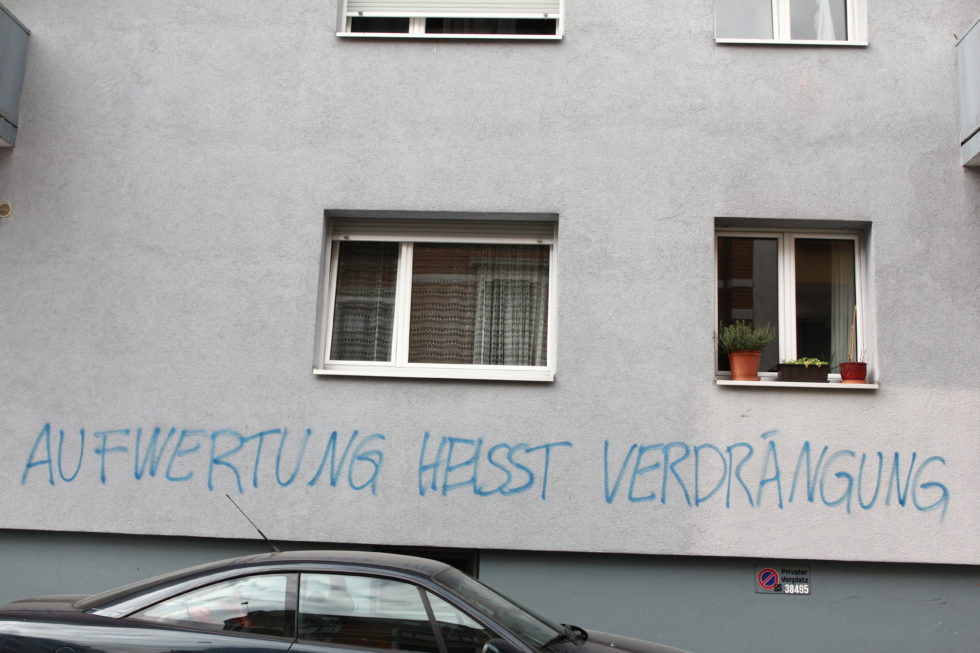 AUFWERTUNG HEISST VERDRÄNGUNG
Privater
Vorplatz
38495